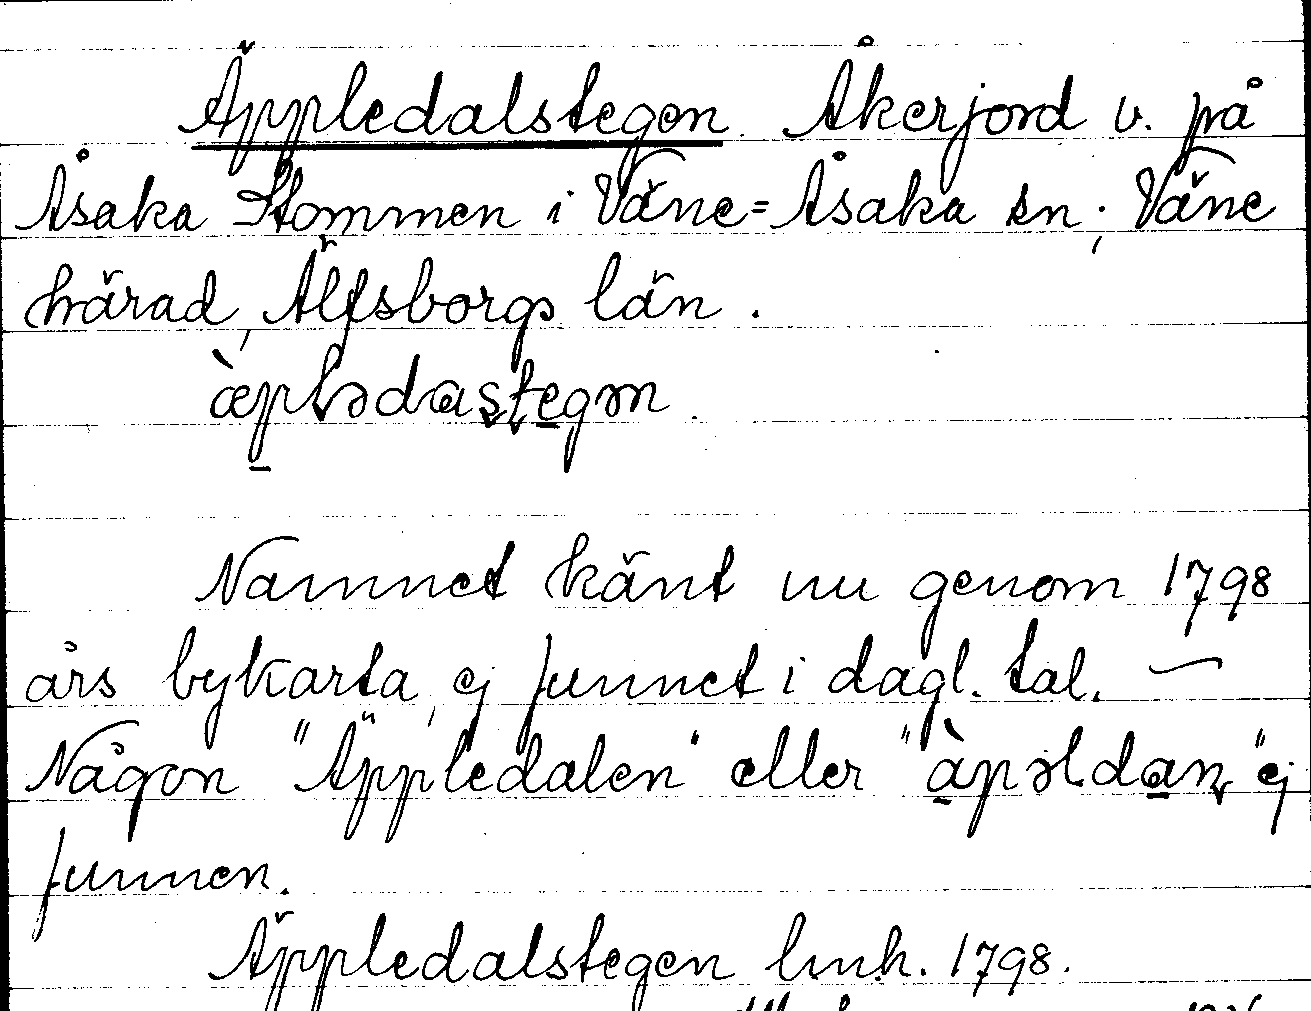 Äppledalstegen. Åkerjord v. på
Åsaka Stommen i Väne=Åsaka sn; Väne
härad, Älfsborgs län.
æ̀plədaştegən.
Namnet känt nu genom 1798
års bykarta, ej funnet i dagl. tal. —
Någon "Äppledalen" eller "àpəldaɳ" ej
funnen.
Äppledalstegen lmh. 1798.